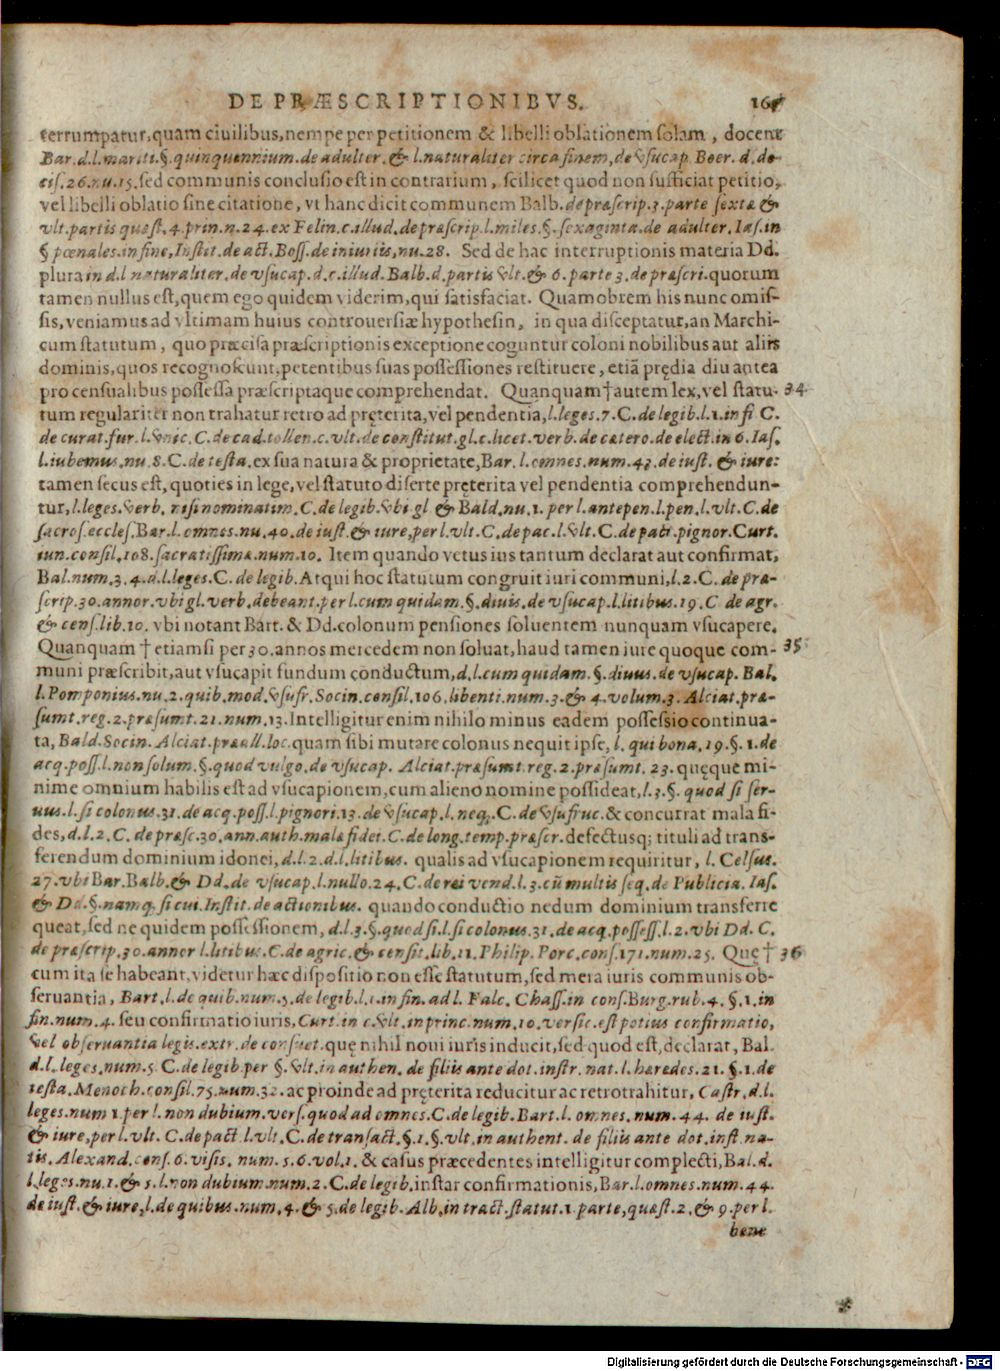 DE PRÆSCRIPTIONIBVS.
terrumpatur, quam ciuilibus, nempe per petitionem & libelli oblationem solam, docent
Bar. d. l. mariti. §. quinquennium. de adulter. & l. naturaliter circa finem, de vsucap. Boer. d. de-
cis. 26. nu. 15. sed communis conclusio est in contrarium, scilicet quod non sufficiat petitio,
vel libelli oblatio sine citatione, vt hanc dicit communem Balb. de præscrip. 3. parte sextæ &
vlt. partis quæst. 4. prin. n. 24. ex Felin. c. illud. de præscrip. l. miles. §. sexaginta. de adulter. Ias. in
§ pœnales. in fine, Instit. de act. Boss. de iniuriis, nu. 28. Sed de hac interruptionis materia Dd.
plura in d. l naturaliter. de vsucap. d. c. illud. Balb. d. partis vlt. & 6. parte 3. de præscri. quorum
tamen nullus est, quem ego quidem viderim, qui satisfaciat. Quamobrem his nunc omis-
sis, veniamus ad vltimam huius controuersiæ hypothesin, in qua disceptatur, an Marchi-
cum statutum, quo præcisa præscriptionis exceptione coguntur coloni nobilibus aut aliis
dominis, quos recognoscunt, petentibus suas possessiones restituere, etiã prędia diu antea
pro censualibus possessa præscriptaque comprehendat. Quanquam † autem lex, vel statu- 34
tum regulariter non trahatur retro ad pręterita, vel pendentia, l. leges. 7. C. de legib. l. 1. in fi C.
de curat. fur. l. vnic. C. de cad. tollen. c. vlt. de constitut. gl. c. licet. verb. de cætero. de elect. in 6. Ias.
l. iubemus. nu. 8. C. de testa. ex sua natura & proprietate, Bar. l. omnes. num. 43. de iust. & iure:
tamen secus est, quoties in lege, vel statuto diserte pręterita vel pendentia comprehendun-
tur, l. leges. verb. nisi nominatim. C. de legib. vbi gl & Bald. nu. 1. per l. antepen. l. pen. l. vlt. C. de
sacros. eccles. Bar. l. omnes. nu. 40. de iust. & iure, per l. vlt. C. de pac. l. vlt. C. de pact. pignor. Curt.
iun. consil. 108. sacratissima. num. 10. Item quando vetus ius tantum declarat aut confirmat,
Bal. num. 3. 4. d. l. leges. C. de legib. Atqui hoc statutum congruit iuri communi, l. 2. C. de præ-
scrip. 30. annor. vbi gl. verb. debeant. per l. cum quidam. §. diuis. de vsucap. l. litibus. 19. C de agr.
& cens. lib. 10. vbi notant Bart. & Dd. colonum pensiones soluentem nunquam vsucapere.
Quanquam † etiamsi per 30. annos mercedem non soluat, haud tamen iure quoque com- 35
muni præscribit, aut vsucapit fundum conductum, d. l. cum quidam. §. diuus. de vsucap. Bal.
l. Pomponius. nu. 2. quib. mod. vsusfr. Socin. consil. 106. libenti. num. 3. & 4. volum. 3. Alciat. præ-
sumt. reg. 2. præsumt. 21. num. 13. Intelligitur enim nihilo minus eadem possessio continua-
ta, Bald. Socin. Alciat. præall. loc. quam sibi mutare colonus nequit ipse, l. qui bona. 19. §. 1. de
acq. poss. l. non solum. §. quod vulgo. de vsucap. Alciat. præsumt. reg. 2. præsumt. 23. quęque mi-
nime omnium habilis est ad vsucapionem, cum alieno nomine possideat, l. 3. §. quod si ser-
uus. l. si colonus. 31. de acq. poss. l. pignori. 13. de vsucap. l. neq;. C. de vsufruc. & concurrat mala fi-
des, d. l. 2. C. de præsc. 30. ann. auth. malæ fidei. C. de long. temp. præscr. defectusq; tituli ad trans-
ferendum dominium idonei, d. l. 2. d. l. litibus. qualis ad vsucapionem requiritur, l. Celsus.
27. vbi Bar. Balb. & Dd. de vsucap. l. nullo. 24. C. de rei vend. l. 3. cũ multis seq. de Publicia. Ias.
& Dd. §. namq; si cui. Instit. de actionibus. quando conductio nedum dominium transferre
queat, sed ne quidem possessionem, d. l. 3. §. quod si. l. si colonus. 31. de acq. possess. l. 2. vbi Dd. C.
de præscrip. 30. annor l. litibus. C. de agric. & censit. lib. 11. Philip. Porc. cons. 171. num. 25. Quę † 36
cum ita se habeant, videtur hæc dispositio non esse statutum, sed mera iuris communis ob-
seruantia, Bart. l. de quib. num. 5. de legib. l. 1. in fin. ad l. Falc. Chass. in cons. Burg. rub. 4. §. 1. in
fin. num. 4. seu confirmatio iuris, Curt. in c. vlt. in princ. num. 10. versic. est potius confirmatio,
vel obseruantia legis. extr. de consuet. quę nihil noui iuris inducit, sed quod est, declarat, Bal.
d. l. leges. num. 5. C. de legib. per §. vlt. in authen. de filiis ante dot. instr. nat. l. hæredes. 21. §. 1. de
testa. Menoch. consil. 75. num. 32. ac proinde ad pręterita reducitur ac retrotrahitur, Castr. d. l.
leges. num 1. per l. non dubium. vers. quod ad omnes. C. de legib. Bart. l. omnes. num. 44. de iust.
& iure, per l. vlt. C. de pact. l. vlt. C. de transact. §. 1. §. vlt. in authent. de filiis ante dot. inst. na-
tis. Alexand. cons. 6. visis. num. 5. 6. vol. 1. & casus præcedentes intelligitur complecti, Bal. d.
l. leges. nu. 1. & 5. l. non dubium. num. 2. C. de legib. instar confirmationis, Bar. l. omnes. num. 44.
de iust. & iure, l. de quibus. num. 4. & 5. de legib. Alb. in tract. statut. 1. parte, quæst. 2. & 9. per l.
bene
Digitalisierung gefördert durch die Deutsche Forschungsgemeinschaft - DFG